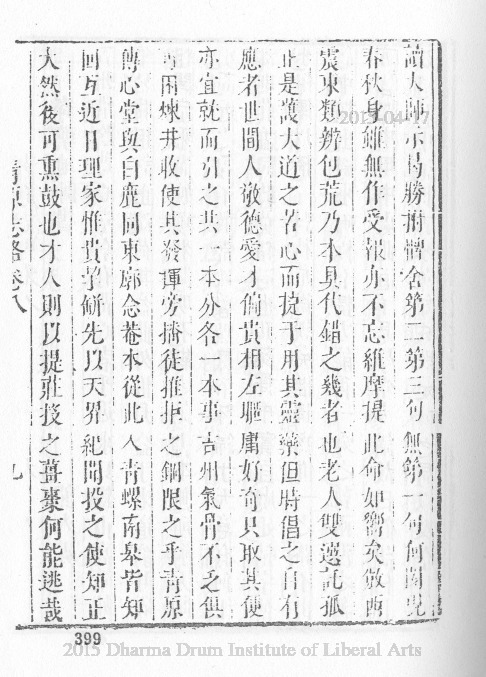 讀大師示曷勝拊髀舍第二第三句無第一句何閒說
春秋身雖無作受報亦不忘維摩提此命如嚮矣敬西
震東類辨包荒乃本具代錯之幾者也老人雙選託孤
正是護大道之苦心而掟于用其靈藥但時倡之自有
應者世間人敬德愛才偏貴相左驅庸好奇只取其便
亦宜就而引之共一本分各一本事吉州氣骨不乏俱
可雨煉井收使其發揮旁播徒推拒之錮限之乎青原
傳心堂與白鹿同東廓念菴本從此入青螺南皋皆知
回互近日理家惟貴 先以天界紀聞投之使知正
大然後可熏鼓也才人則以提莊投之薑棗何能逃哉
青原志略卷八
九
399
2015 Dharma Drum Institute of Liberal Arts